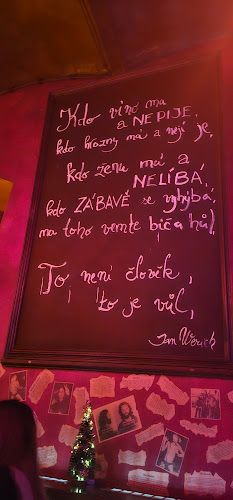 Kdo víno má
a NEPIJE,
kdo hrozny má a nejí je,
kdo ženu má a
NELÍBÁ,
kdo ZÁBAVĚ se vyhýbá,
na toho vemte bič a hůl.
To není člověk,
to je vůl,
Jan Werich